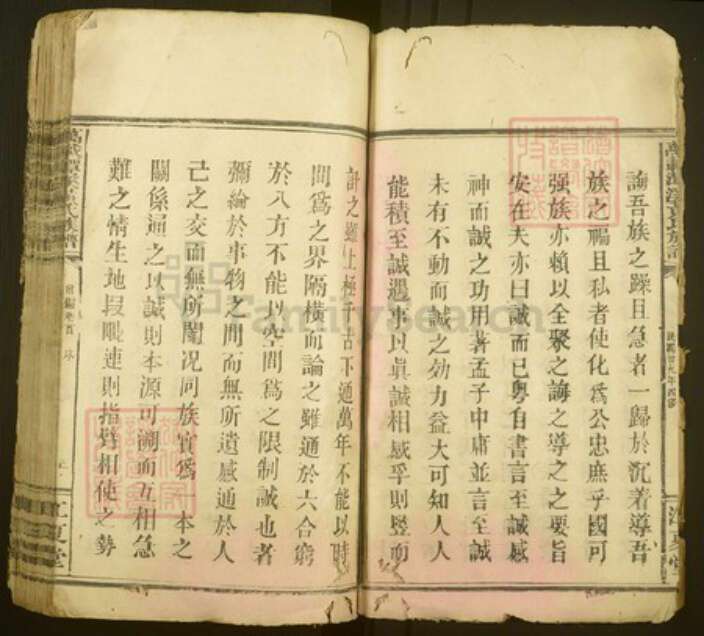 誨吾族之躁且急者一歸於沉着導吾
族之褊且私者使化為公忠庶乎國可
强族亦賴以全聚之誨之導之之要旨
安在夫亦曰誠而已粵自書言至誠感
神而誠之功用著孟子中庸並言至誠
未有不動而誠之効力益大可知人人
能積至誠遇事以眞誠相感孚則竪而
計之雖上極千古下通萬年不能以時
間為之界隔橫而論之雖通於六合窮
於八方不能以空間為之限制誠也者
彌綸於事物之間而無所遺感通於人
己之交而無所閡况同族實為一本之
關係逼之以誠則本源可溯而互相急
難之情生地段毗連則指臂相使之勢
江夏堂
FamilySearch